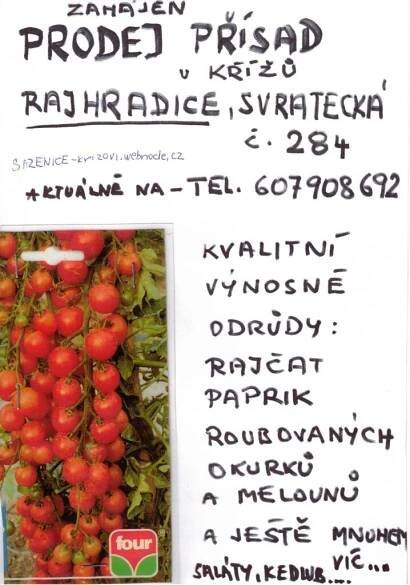 ZAHÁJEN
PRODEJ PŘÍSAD
U KŘÍŽŮ
RAJHRADICE, SVRATECKÁ
č. 284
SAZENICE-krizovi.webnode.cz
AKTUÁLNĚ NA - TEL. 607908692
KVALITNÍ
VÝNOSNÉ
ODRŮDY:
RAJČAT
PAPRIK
ROUBOVANÝCH
OKURKŮ
A MELOUNŮ
A JEŠTĚ MNOHEM
VÍC....
SALÁTY, KEDLUB....
four